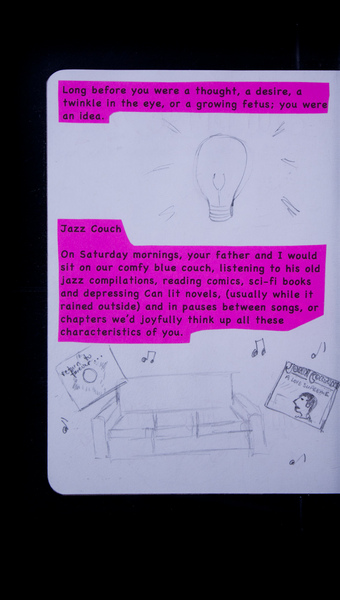 Long before you were a thought, a desire, a
twinkle in the eye, or a growing fetus; you were
an idea.
Jazz Couch
On Saturday mornings, your father and I would
sit on our comfy blue couch, listening to his old
jazz compilations, reading comics, sci-fi books
and depressing Can lit novels, (usually while it
rained outside) and in pauses between songs, or
chapters we'd joyfully think up all these
characteristics of you.
A LOVE SUPREME